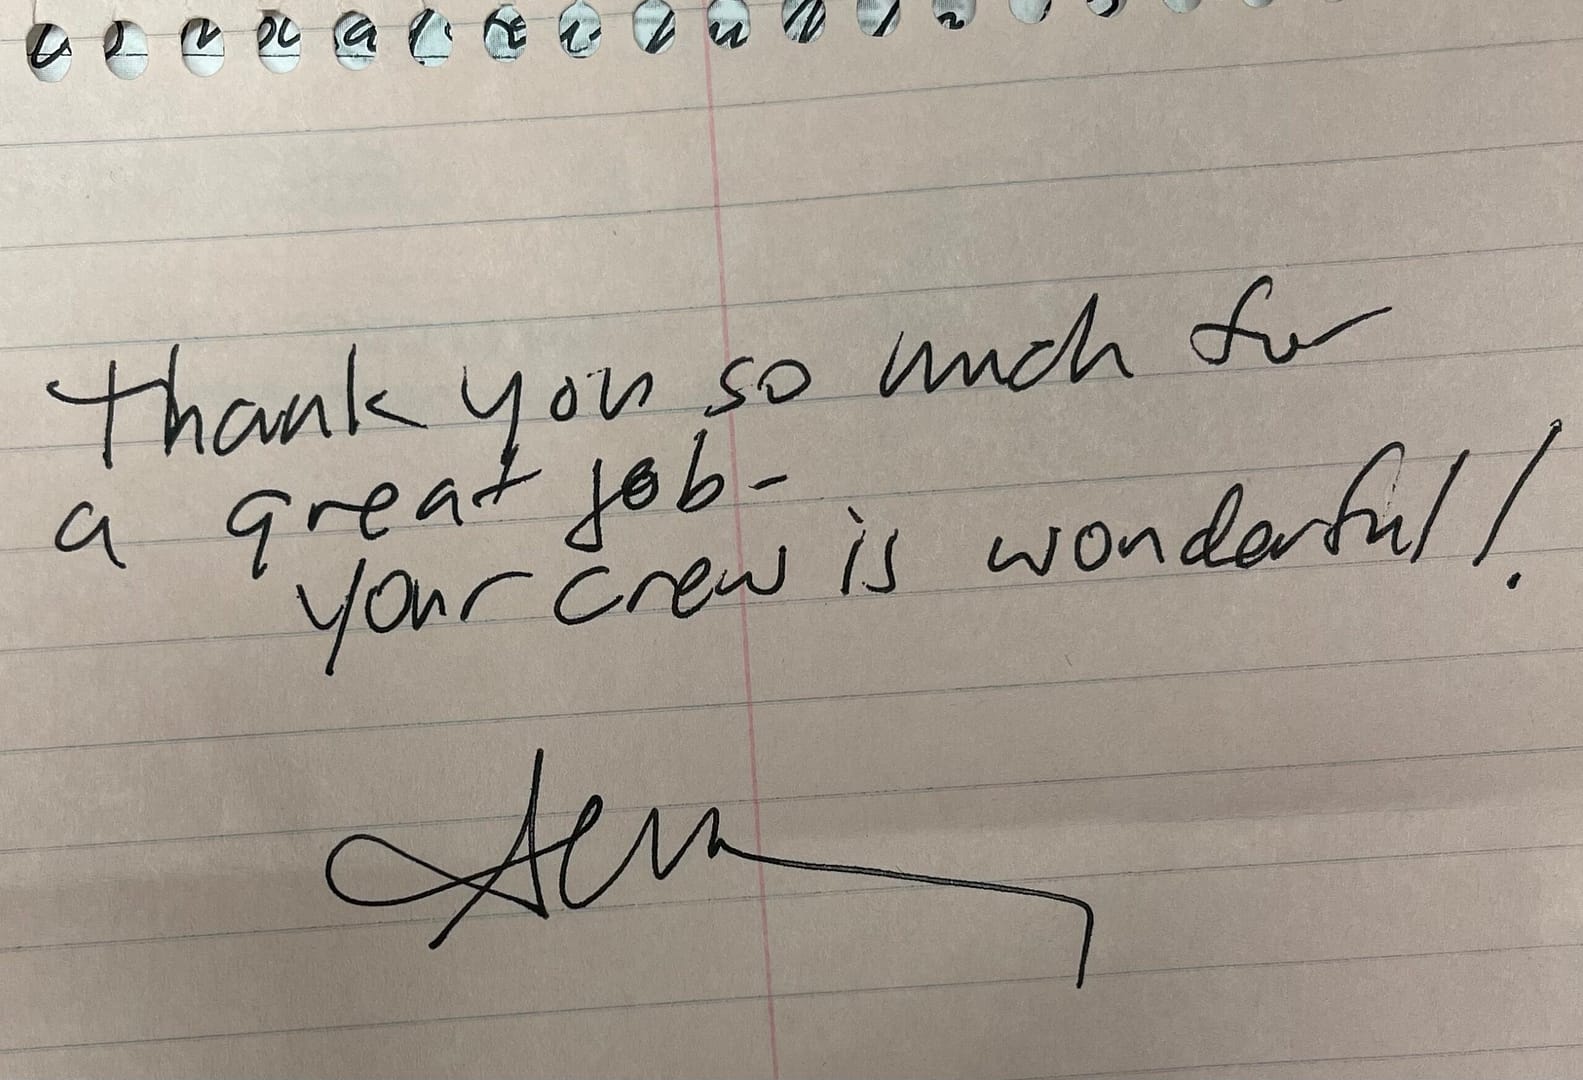 Thank you so much for
a great job-
your crew is wonderful!